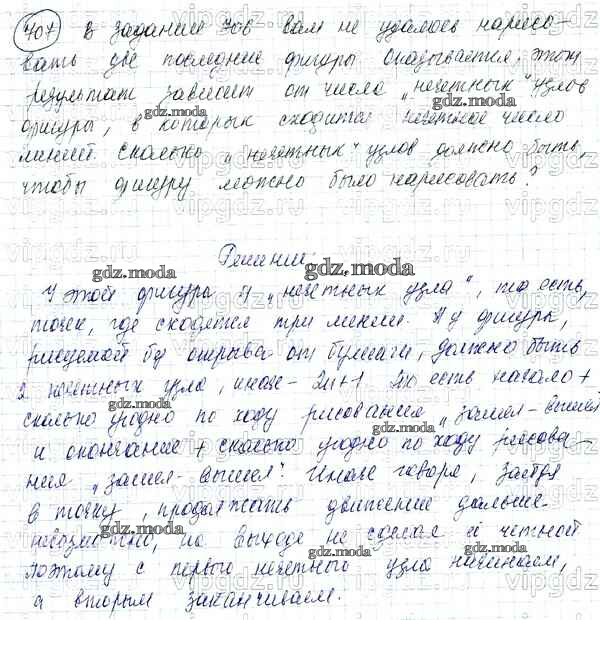 707 В задании 706 вам не удалось нарисо-
вать две последние фигуры. Оказывается, этот
результат зависит от числа „нечетных" узлов
фигуры, в которых сходится нечетное число
линий. Сколько „нечетных" узлов должно быть,
чтобы фигуру можно было нарисовать?
Решение.
У этой фигуры 4 „нечетных узла", то есть,
точек, где сходятся три линии. А у фигуры,
рисуемой без отрыва от бумаги, должно быть
2 нечетных узла, иначе - 2n+1. То есть начало +
сколько угодно по ходу рисования „зашел - вышел"
и окончание + сколько угодно по ходу рисова-
ния „зашел - вышел". Иначе говоря, зайдя
в точку, продолжать движение дальше
невозможно, на выходе не сделав её четной
Поэтому с первого нечетного узла начинаем,
а вторым заканчиваем.
gdz.moda
vipgdz.ru